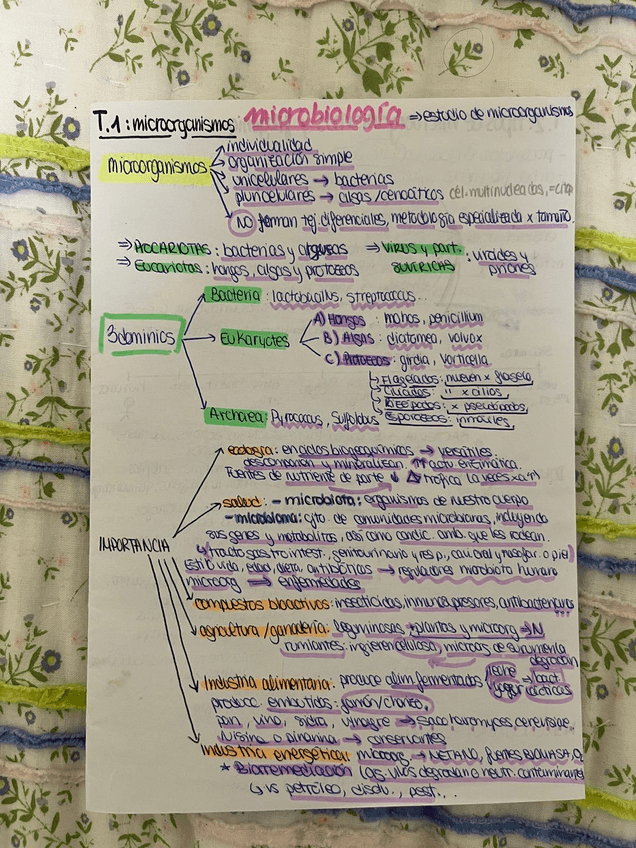 T.1: microorganismos microbiología ⇒ estudio de microorganismos
microorganismos
individualidad
organización simple
unicelulares → bacterias
pluricelulares → algas/cenocíticos cél. multinucleadas,
NO forman tej. diferenciales, metodología especializada x tamaño.
⇒ PROCARIOTAS: bacterias y
⇒ Eucariotas: hongos, algas y protozoos
⇒ VIRUS y part. : viroides y priones
3 dominios
Bacteria: lactobacillus, streptococcus...
Eukaryotes
A) Hongos: mohos, penicillium
B) Algas: diatomea, volvox
C) Protozoos: girdia, vorticella
Flagelados: mueven x flagelo
Ciliados: " x cilios
x pseudópodos
Esporozoos: inmóviles
Archaea: Pyrococcus, Sulfolobus
IMPORTANCIA
ecología: en ciclos biogeoquímicos → versátiles
descomponen y mineralizan. ↑↑ acto enzimática.
Fuentes de nutriente de parte ↓ trófica
salud: - microbiota: organismos de nuestro cuerpo
- microbioma: cjto. de comunidades microbianas, incluyendo
sus genes y metabolitos, así como condic. amb. que les rodean.
↳ tracto gastrointest., genitourinario y resp., cav. oral y nasofar. o piel
estilo vida, edad, dieta, antibióticos → reguladores microbiota humana
microorg → enfermedades
compuestos bioactivos: insecticidas, inmunosupresores, antibacterianos
agricultura/ganadería: leguminosas → plantas y microorg → N
rumiantes: ingieren celulosa, microos de su rumen la degradan
Industria alimentaria: produce alim. fermentados leche → bact. lácticas
yogur
produc. embutidos: jamón/chorizo,
pan, vino, sidra, vinagre → Saccharomyces cerevisiae.
Nisina o pimaricina → conservantes
Industria energética: microorg → METANO, fuentes BIOMASA,
* Biorremediación (og. vivos degradan o neutr. contaminantes
↳ petróleo, disolv., pest...